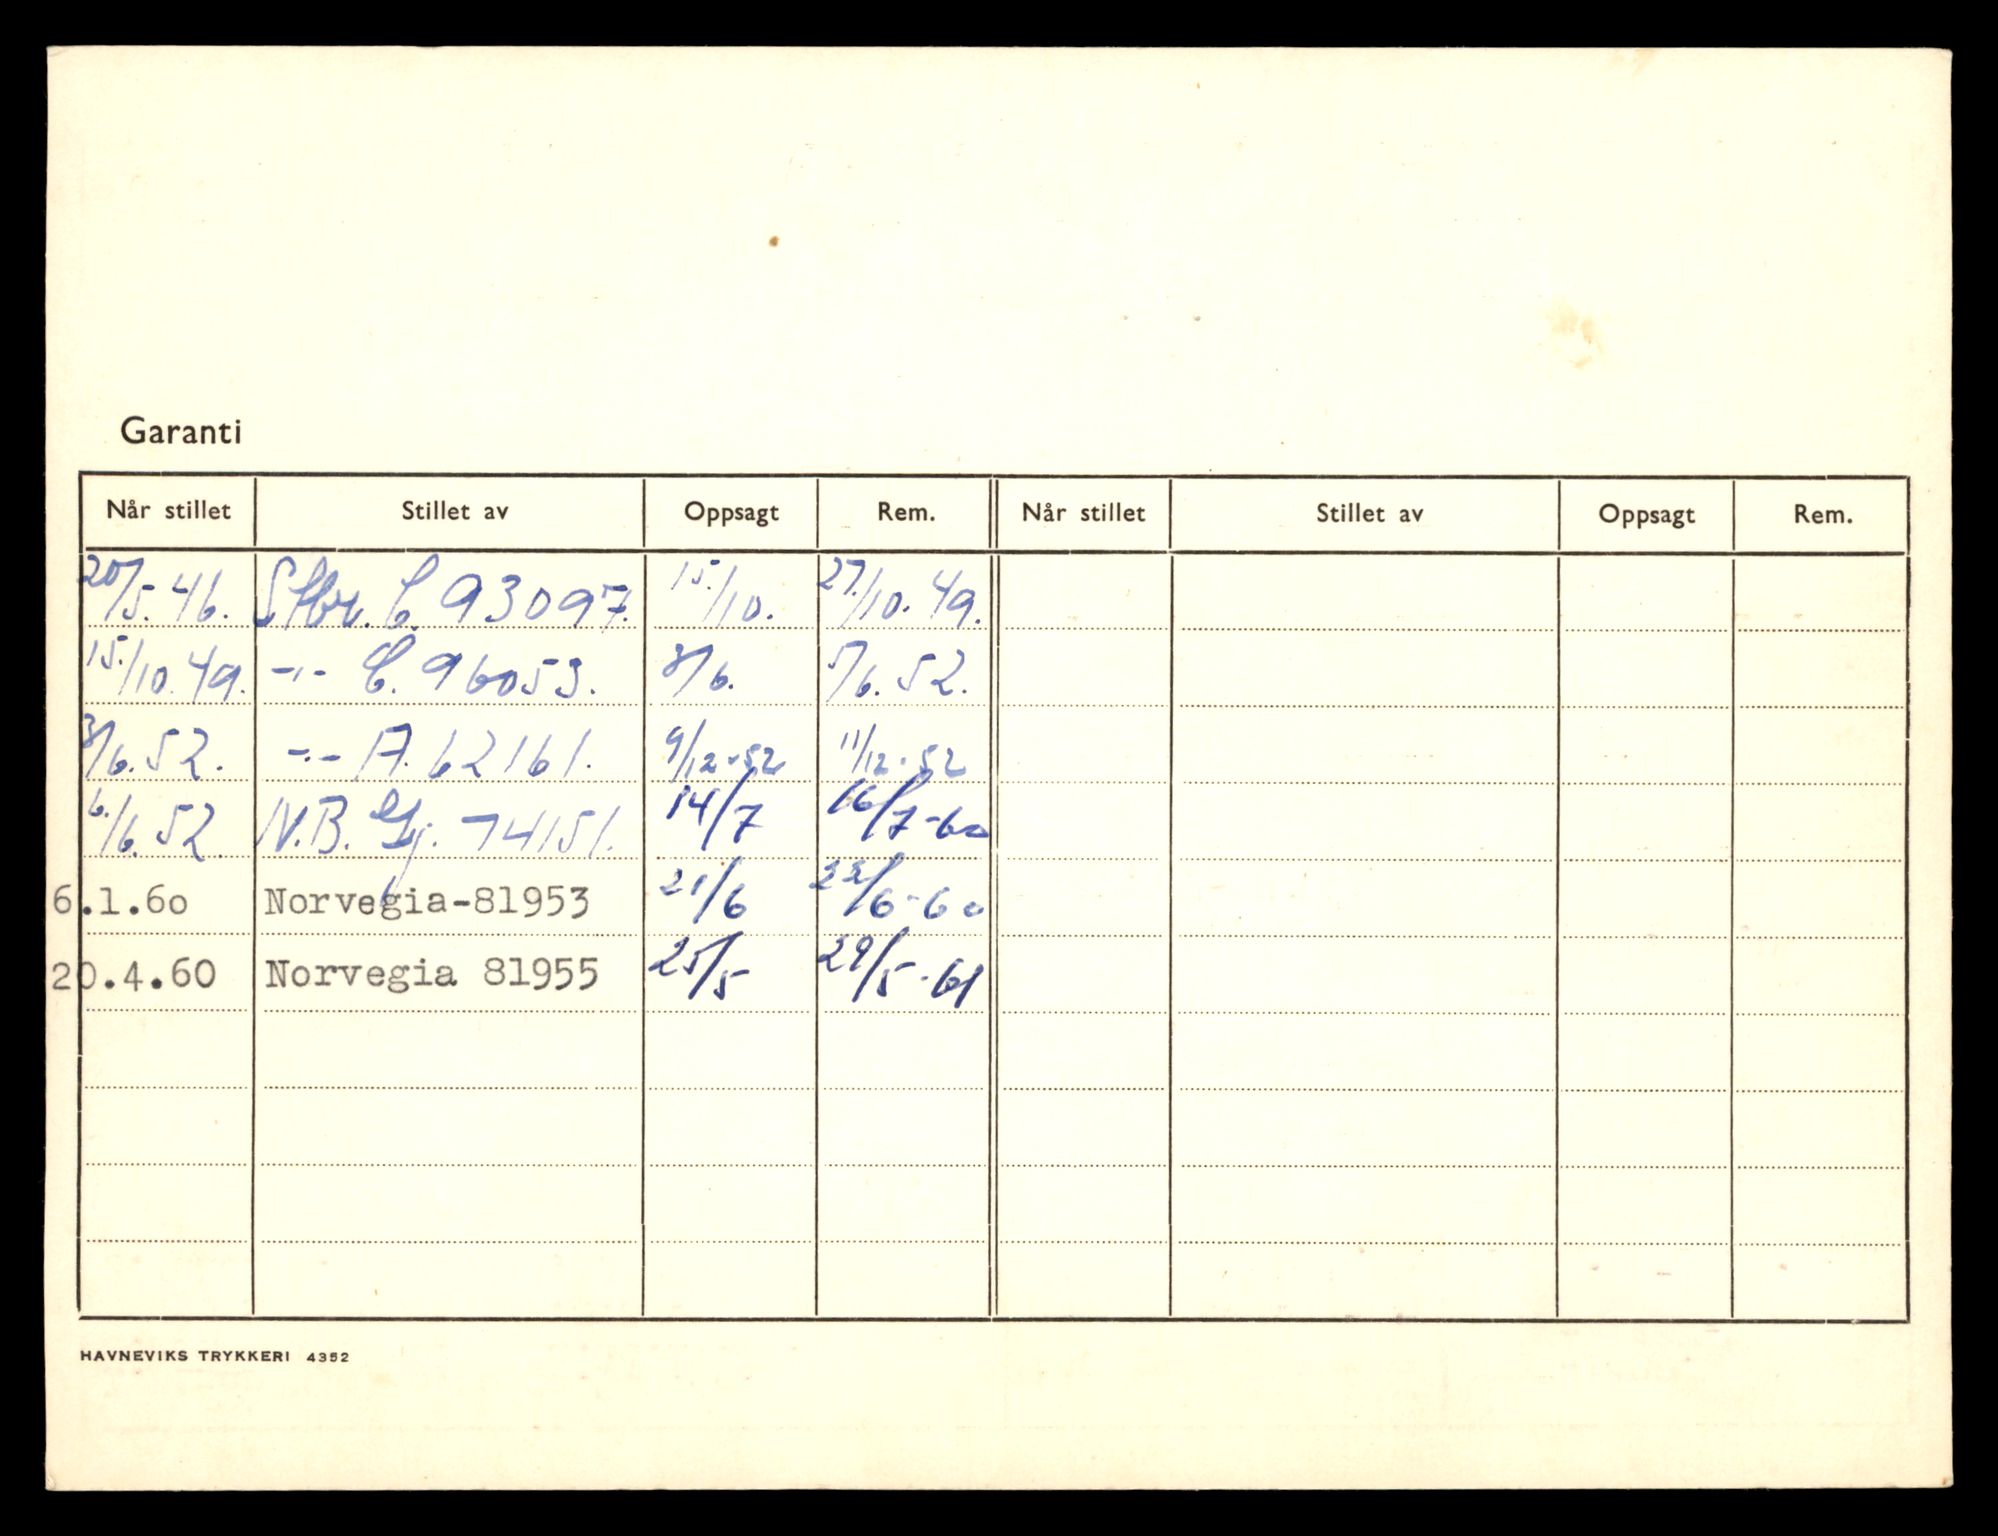 Garanti
Når stillet Stillet av Oppsagt Rem. Når stillet Stillet av Oppsagt Rem.
20/5.46. Stbr. C. 93097. 15./10. 27./10.49.
15./10.49. -"- C. 96053. 3/6. 5/6.52.
3/6.52. -"- A. 62161. 9/12-52 11/12-52
6./6.52. N.B. 74151. 14/7 16/7-60
6.1.60 Norvegia-81953 21/6 22/6-60
20.4.60 Norvegia 81955 25/5 29/5-61
HAVNEVIKS TRYKKERI 4352